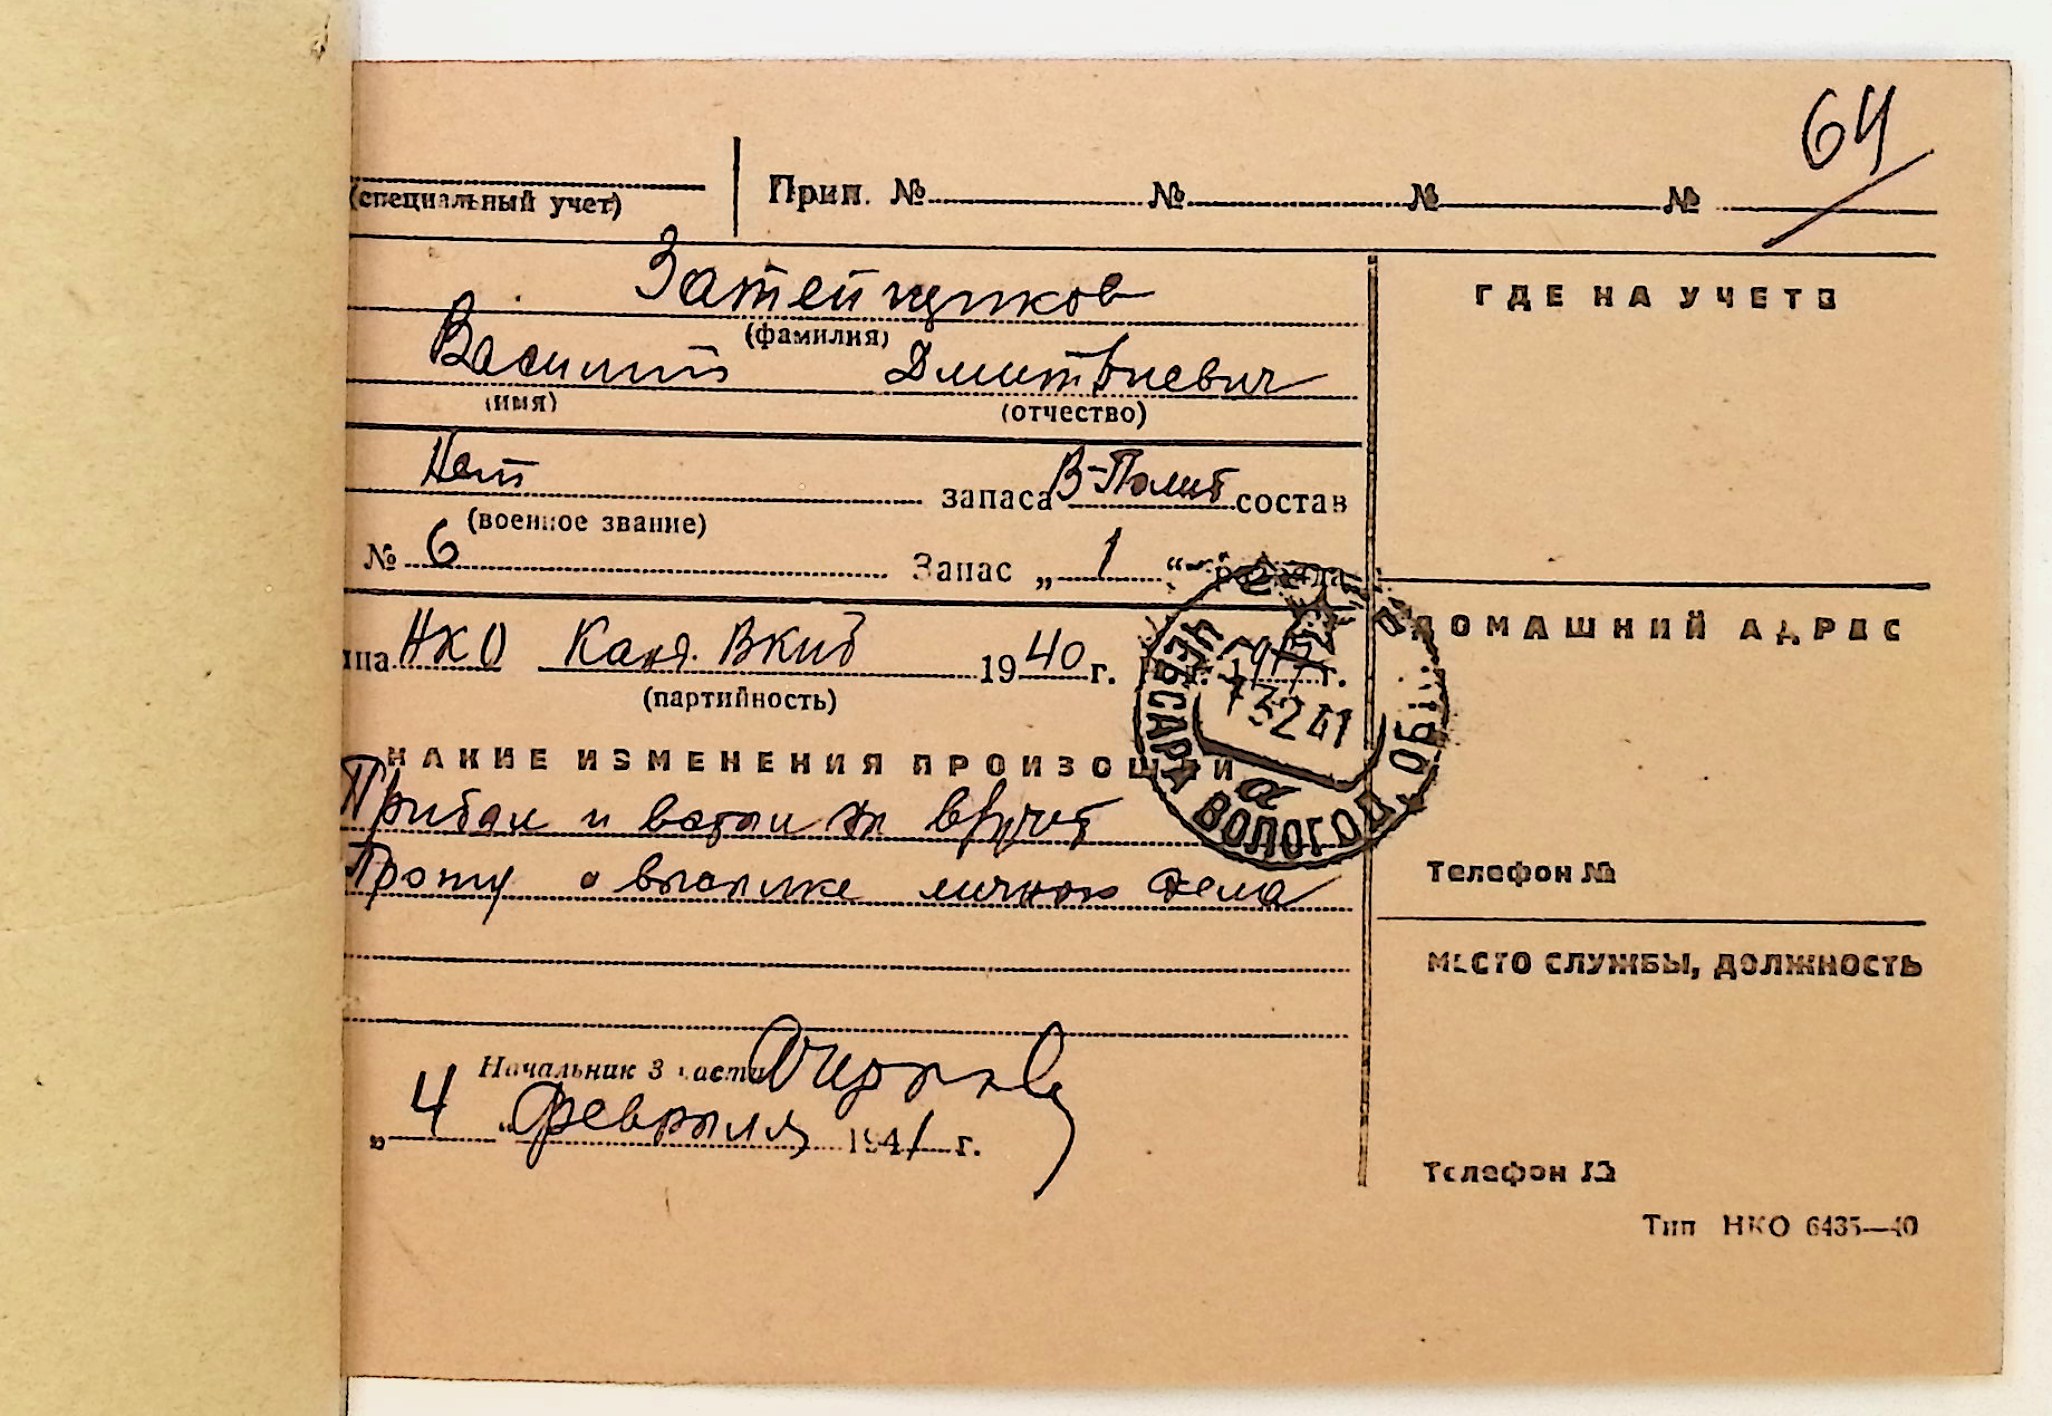 64
(специальный учет)
Прип. № № № №
Затейщиков
(фамилия)
ГДЕ НА УЧЕТЕ
Василий Дмитриевич
(имя) (отчество)
Нет запаса В-Полит состав
(военное звание)
№ 6 Запас „ 1 “ разряда
ДОМАШНИЙ АДРЕС
НКО Канд. ВКПб 1940 г.
(партийность)
ЧЕБСАРА ВОЛОГОД. ОБЛ.
7 3 2 41
а
КАКИЕ ИЗМЕНЕНИЯ ПРОИЗОШЛИ
Прибыл и встал на в/учет
Прошу о высылке личного дела
Телефон №
МЕСТО СЛУЖБЫ, ДОЛЖНОСТЬ
Начальник 3 части
„ 4 “ Февраля 1941 г.
Телефон №
Тип НКО 6435—40